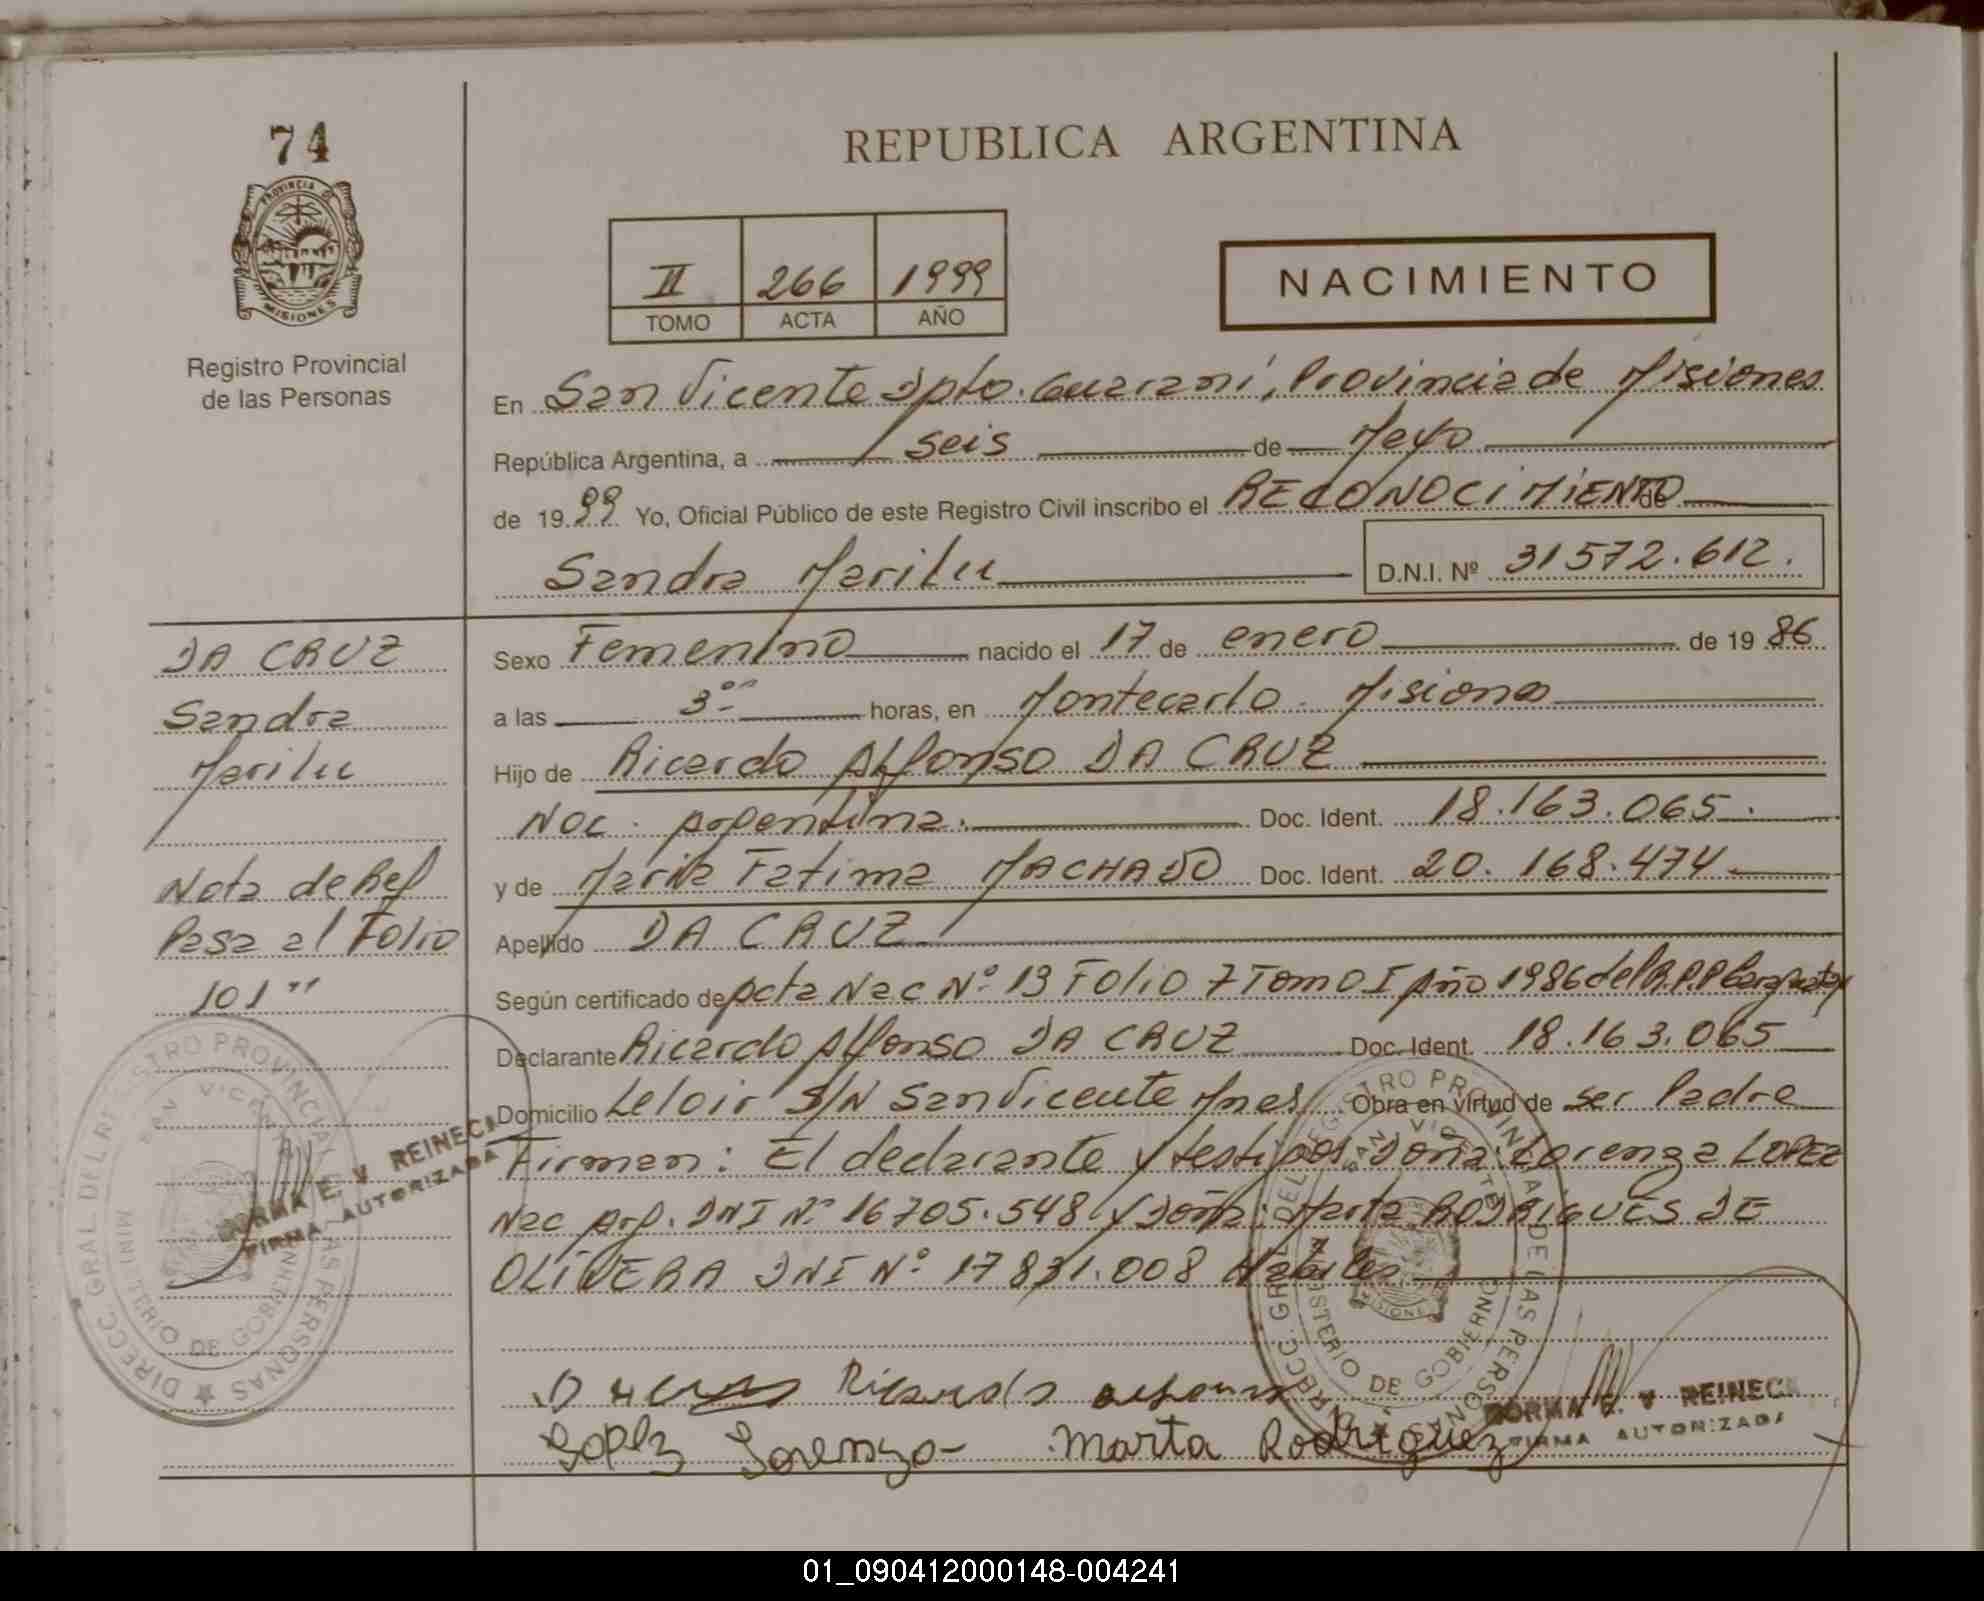 74
REPUBLICA ARGENTINA
PROVINCIA DE
MISIONES
Registro Provincial
de las Personas
II 266 1999
TOMO ACTA AÑO
NACIMIENTO
En San Vicente Dpto. Guaraní, Provincia de Misiones
República Argentina, a seis de Mayo
de 1999 Yo, Oficial Público de este Registro Civil inscribo el RECONOCIMIENTO de
Sandra Marilu D.N.I. Nº 31572.612.
DA CRUZ
Sandra
Marilu
Nota de Ref
Pasa al Folio
101"
Sexo Femenino nacido el 17 de enero de 1986
a las 3 horas, en Montecarlo - Misiones
Hijo de Ricardo Alfonso DA CRUZ
Nac. Argentina. Doc. Ident. 18.163.065.
y de Maria Fatima MACHADO Doc. Ident. 20.168.474
Apellido DA CRUZ
Según certificado de Acta Nac Nº 13 Folio 7 Tomo I Año 1986 del R.P.P
Declarante Ricardo Alfonso DA CRUZ Doc. Ident. 18.163.065
Domicilio Leloir S/N San Vicente Mnes Obra en virtud de ser Padre
Firman: El declarante y testigos Doña: Lorenza LOPEZ
Nac Arg. DNI Nº 16705.548 y Doña: Marta RODRIGUES DE
OLIVERA DNI Nº 17831.008 Habiles
Ricardo
Lopez Lorenza - Marta Rodriguez
DIRECC. GRAL DEL REGISTRO PROVINCIAL DE LAS PERSONAS
SAN VICENTE
MINISTERIO DE GOBIERNO
NORMA E. V REINECK
FIRMA AUTORIZADA
DIRECC. GRAL DEL REGISTRO PROVINCIAL DE LAS PERSONAS
SAN VICENTE
MINISTERIO DE GOBIERNO
MISIONES
NORMA E. V REINECK
FIRMA AUTORIZADA
01_090412000148-004241